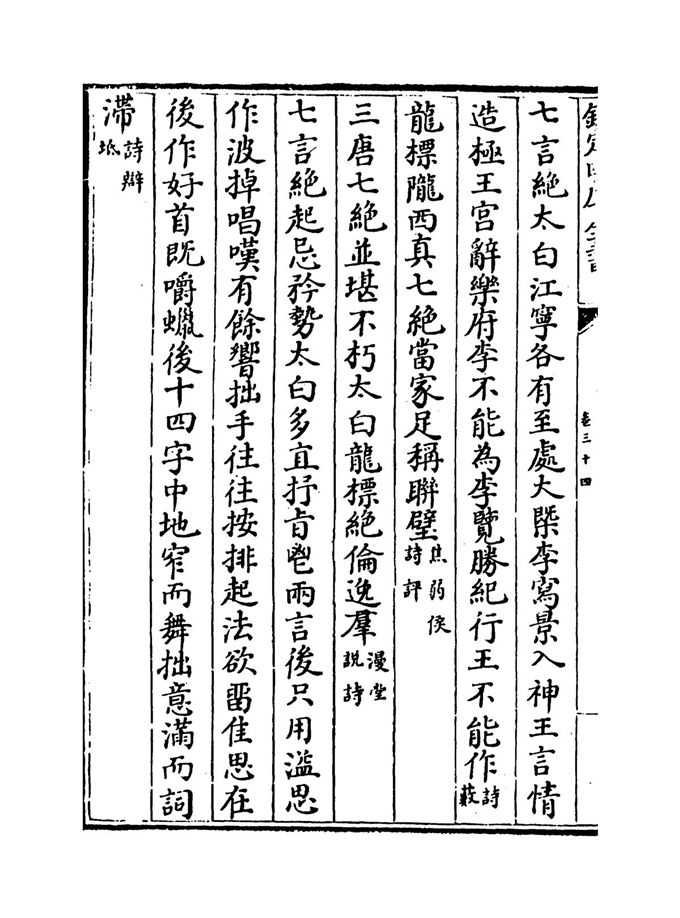 欽定四庫全書
卷三十四
七言絶太白江寧各有至處大槩李寫景入神王言情
造極王宫辭樂府李不能為李覽勝紀行王不能作詩藪
龍標隴西真七絶當家足稱聯璧焦弱侯詩評
三唐七絶並堪不朽太白龍標絶倫逸羣漫堂說詩
七言絶起忌矜勢太白多直抒旨鬯兩言後只用溢思
作波掉唱嘆有餘響拙手往往按排起法欲畱佳思在
後作好首既嚼蠟後十四字中地窄而舞拙意滿而詞
滯詩辯坻